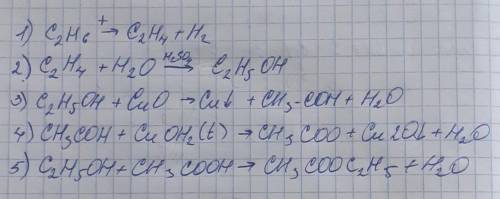 1) C2H6 t→ C2H4 + H2
2) C2H4 + H2O H2SO4→ C2H5OH
3) C2H5OH + CuO → Cu↓ + CH3-COH + H2O
4) CH3COH + CuOH2(t) → CH3COO + Cu2O↓ + H2O
5) C2H5OH + CH3COOH → CH3COOC2H5 + H2O